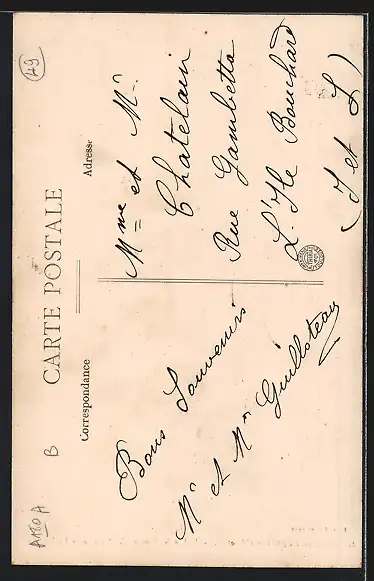 49
CARTE POSTALE
Correspondance
Adresse
B
Bons Souvenirs
Mr et Mme Guilloteau
Mme et Mr
Chatelain
Rue Gambetta
L'Ile Bouchard
(I et L)